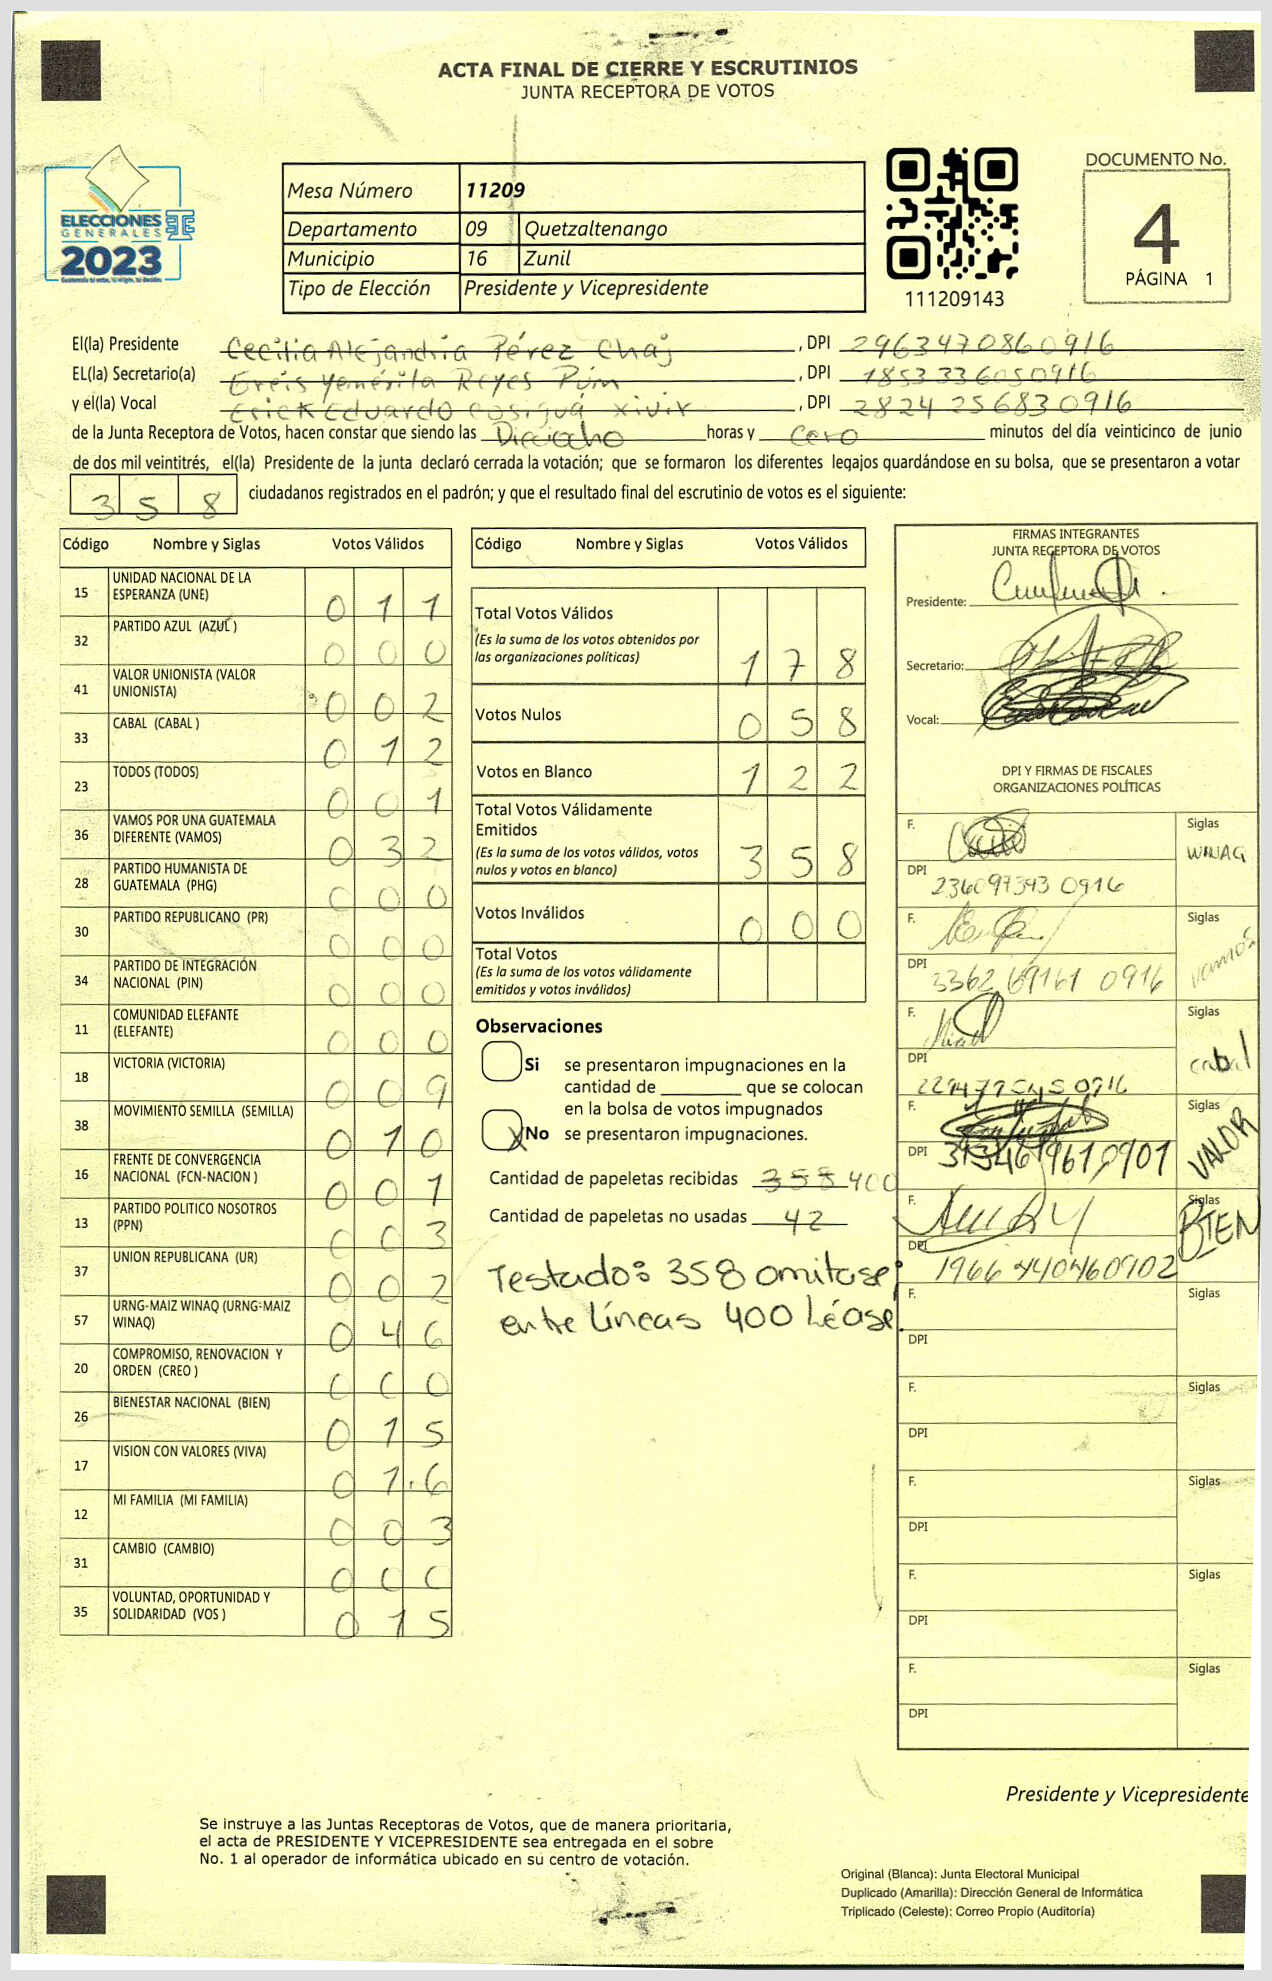 ACTA FINAL DE CIERRE Y ESCRUTINIOS
JUNTA RECEPTORA DE VOTOS
ELECCIONES
GENERALES
2023
Mesa Número 11209
Departamento 09 Quetzaltenango
Municipio 16 Zunil
Tipo de Elección Presidente y Vicepresidente
111209143
DOCUMENTO No.
4
PÁGINA 1
El(la) Presidente Cecilia Alejandria Pérez Chaj, DPI 2963470860916
EL(la) Secretario(a) Greis Yemérita Reyes Púm, DPI 1853336050916
y el(la) Vocal Erick Eduardo Cosiguá Xivir, DPI 2824256830916
de la Junta Receptora de Votos, hacen constar que siendo las Dieciocho horas y Cero minutos del día veinticinco de junio
de dos mil veintitrés, el(la) Presidente de la junta declaró cerrada la votación; que se formaron los diferentes legajos guardándose en su bolsa, que se presentaron a votar
358 ciudadanos registrados en el padrón; y que el resultado final del escrutinio de votos es el siguiente:
Código Nombre y Siglas Votos Válidos
15 UNIDAD NACIONAL DE LA ESPERANZA (UNE) 011
32 PARTIDO AZUL (AZUL ) 000
41 VALOR UNIONISTA (VALOR UNIONISTA) 002
33 CABAL (CABAL ) 012
23 TODOS (TODOS) 001
36 VAMOS POR UNA GUATEMALA DIFERENTE (VAMOS) 032
28 PARTIDO HUMANISTA DE GUATEMALA (PHG) 000
30 PARTIDO REPUBLICANO (PR) 000
34 PARTIDO DE INTEGRACIÓN NACIONAL (PIN) 000
11 COMUNIDAD ELEFANTE (ELEFANTE) 000
18 VICTORIA (VICTORIA) 009
38 MOVIMIENTO SEMILLA (SEMILLA) 010
16 FRENTE DE CONVERGENCIA NACIONAL (FCN-NACION ) 001
13 PARTIDO POLITICO NOSOTROS (PPN) 003
37 UNION REPUBLICANA (UR) 002
57 URNG-MAIZ WINAQ (URNG-MAIZ WINAQ) 046
20 COMPROMISO, RENOVACION Y ORDEN (CREO ) 000
26 BIENESTAR NACIONAL (BIEN) 015
17 VISION CON VALORES (VIVA) 016
12 MI FAMILIA (MI FAMILIA) 003
31 CAMBIO (CAMBIO) 000
35 VOLUNTAD, OPORTUNIDAD Y SOLIDARIDAD (VOS ) 015
Código Nombre y Siglas Votos Válidos
Total Votos Válidos 178
(Es la suma de los votos obtenidos por
las organizaciones políticas)
Votos Nulos 058
Votos en Blanco 122
Total Votos Válidamente
Emitidos 358
(Es la suma de los votos válidos, votos
nulos y votos en blanco)
Votos Inválidos 000
Total Votos
(Es la suma de los votos válidamente
emitidos y votos inválidos)
Observaciones
Si se presentaron impugnaciones en la
cantidad de ________ que se colocan
en la bolsa de votos impugnados
X No se presentaron impugnaciones.
Cantidad de papeletas recibidas 358 400
Cantidad de papeletas no usadas 42
Testado: 358 omitase;
entre líneas 400 Léase.
FIRMAS INTEGRANTES
JUNTA RECEPTORA DE VOTOS
Presidente:
Secretario:
Vocal:
DPI Y FIRMAS DE FISCALES
ORGANIZACIONES POLÍTICAS
F. Siglas
WINAQ
DPI 236097393 0916
F. Siglas
vamos
DPI 3362 69161 0916
F. Siglas
cabal
DPI
F. Siglas
VALOR
DPI 3134619610901
F. Siglas
BIEN
DPI 1966 440460902
F. Siglas
DPI
F. Siglas
DPI
F. Siglas
DPI
F. Siglas
DPI
F. Siglas
DPI
Presidente y Vicepresidente
Se instruye a las Juntas Receptoras de Votos, que de manera prioritaria,
el acta de PRESIDENTE Y VICEPRESIDENTE sea entregada en el sobre
No. 1 al operador de informática ubicado en su centro de votación.
Original (Blanca): Junta Electoral Municipal
Duplicado (Amarilla): Dirección General de Informática
Triplicado (Celeste): Correo Propio (Auditoría)